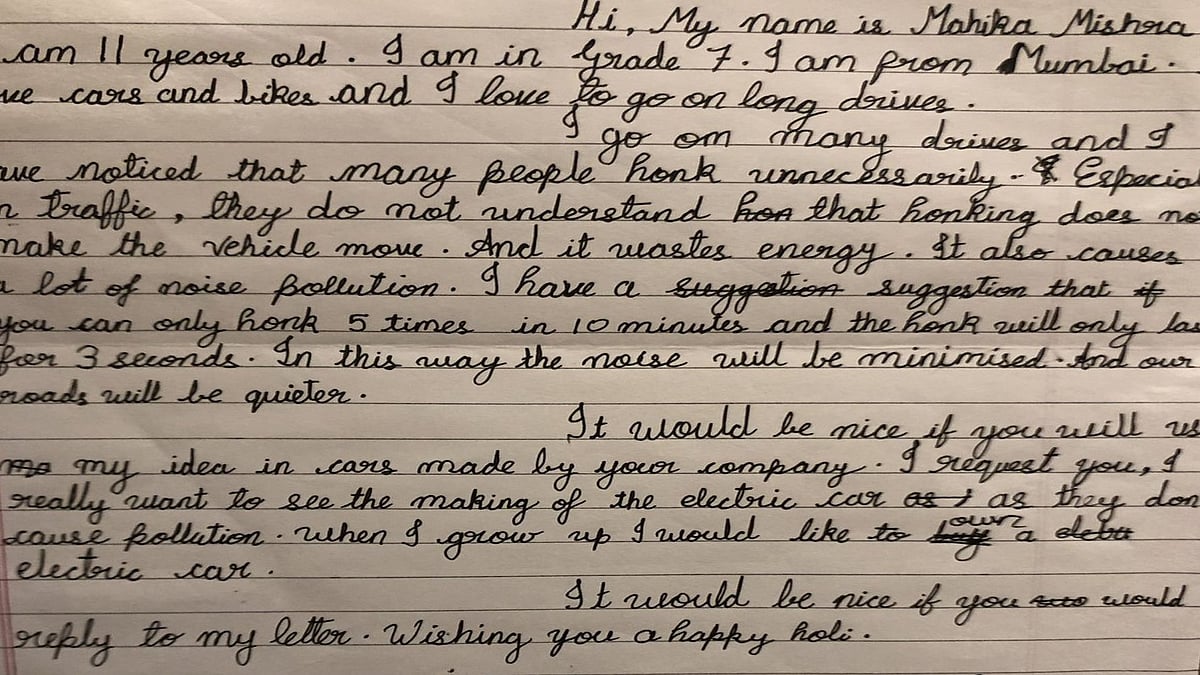 Hi, My name is Mahika Mishra
am 11 years old. I am in Grade 7. I am from Mumbai.
ve cars and bikes and I love to go on long drives.
I go om many drives and I
ave noticed that many people honk unnecessarily. Especial
n traffic, they do not understand hon that honking does no
make the vehicle move. And it wastes energy. It also causes
a lot of noise pollution. I have a suggetion suggestion that if
you can only honk 5 times in 10 minutes and the honk will only las
for 3 seconds. In this way the noise will be minimised. And our
roads will be quieter.
It would be nice if you will us
my idea in cars made by your company. I request you, I
really want to see the making of the electric car as i as they don
cause pollution. When I grow up I would like to buy own a
electric car.
It would be nice if you would
reply to my letter. Wishing you a happy holi.